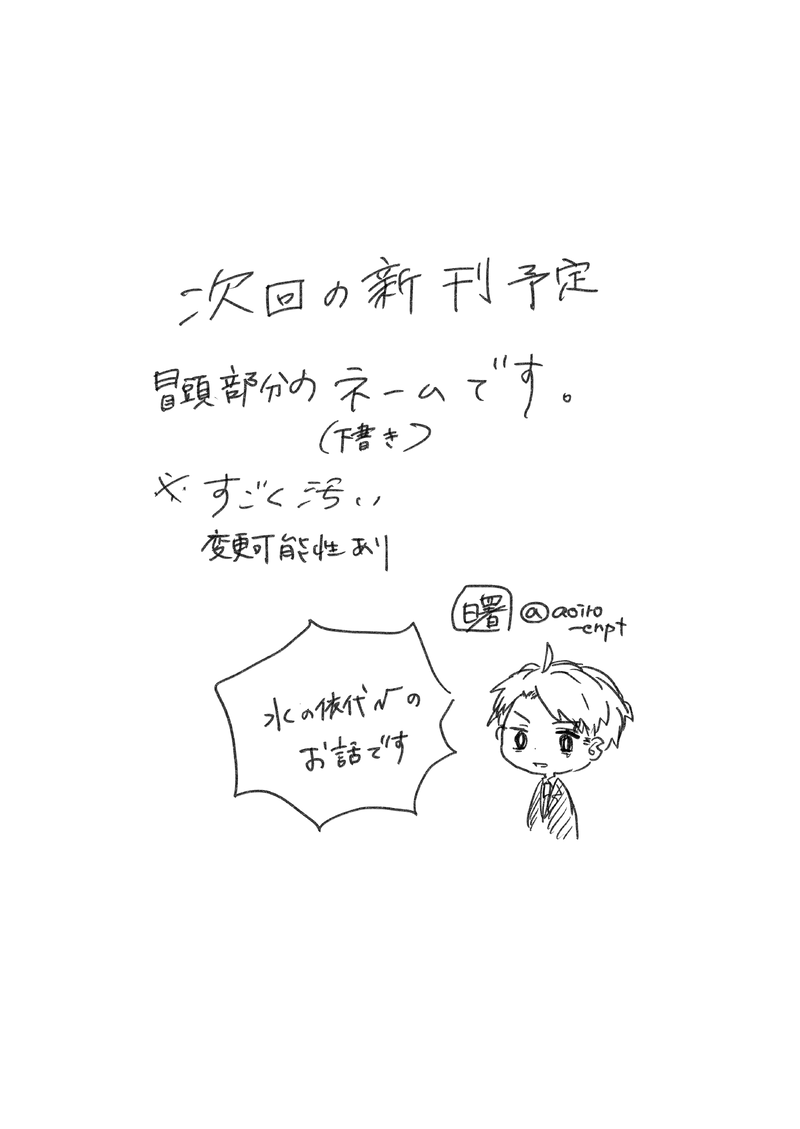 次回の新刊予定
冒頭部分のネームです。
(下書き)
※すごく汚い
変更可能性あり
曙 @aoiro
_enpt
水の依代√の
お話です